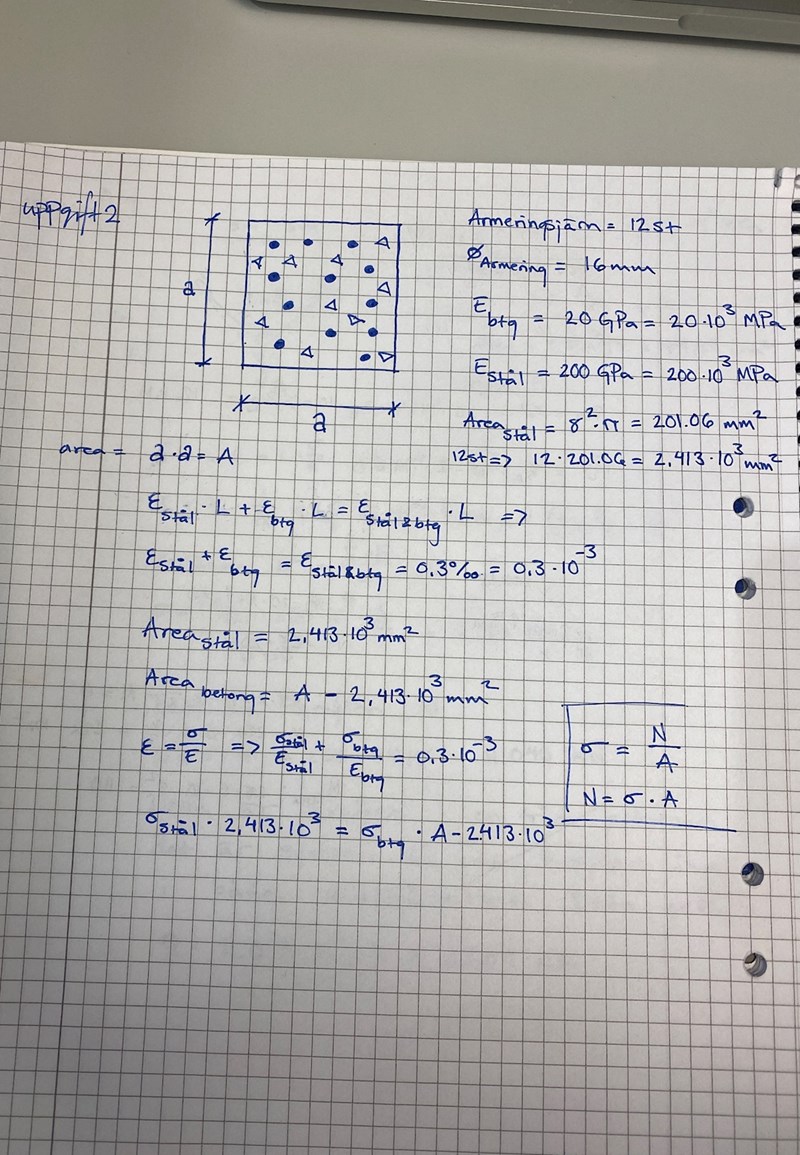 uppgift 2
Armeringsjärn = 12st
Ø Armering = 16mm
E btg = 20 GPa = 20·10³ MPa
E stål = 200 GPa = 200·10³ MPa
Area stål = 8²·π = 201.06 mm²
12st => 12·201.06 = 2,413·10³ mm²
a
a
area = a·a = A
ε stål · L + ε btg · L = ε stål&btg · L =>
ε stål + ε btg = ε stål&btg = 0.3‰ = 0.3·10⁻³
Area stål = 2,413·10³ mm²
Area betong = A − 2,413·10³ mm²
ε = σ/E => σ stål/E stål + σ btg/E btg = 0,3·10⁻³
σ = N/A
N = σ · A
σ stål · 2,413·10³ = σ btg · A − 2413·10³